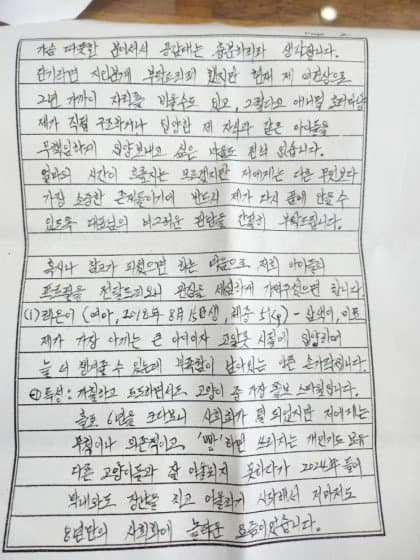 가슴 따뜻할 분이셔서 공감대는 충분하리라 생각됩니다.
단기라면 지인분께 부탁드리려 했지만 현재 제 여건상으로
2년 가까이 자리를 비울수도 있고, 그렇다고 애니멀 호더처럼
제가 직접 구조하거나 입양한 제 자식과 같은 아이들을
무책임하게 입양보내고 싶은 마음도 전혀 없습니다.
얼마의 시간이 흐를지는 모르겠지만 저에게는 다른 무엇보다
가장 소중한 존재들이기에 반드시 제가 다시 품에 안을 수
있도록 대표님의 너그러운 결단을 간절히 부탁드립니다.
혹시나 참고가 되셨으면 하는 마음으로 저희 아이들의
프로필을 전달드리오니 관심을 세심하게 가져주셨으면 합니다.
(1) 레온이 (여아, 2018년 8월 15일생, 체중 5kg) - 삼색이,
제가 가장 아끼는 큰 아이이자 고달픈 시절에 입양하여
늘 더 챙겨줄 수 있는데 부족함이 남아있는 아픈 손가락입니다.
① 특성: 까칠하고 도도하면서도 고양이 중 가장 쫄보 스타일입니다.
홀로 6년을 크다보니 사회화가 덜 되었지만 저에게는
무척이나 의존적이고, '빵'하면 쓰러지는 개인기도 보유
다른 고양이들과 잘 어울리지 못하다가 2024년 들어
막내와도 장난을 치고 어울리기 시작해서 저마저도
8년만의 사회화에 놀라운 요즘이었습니다.